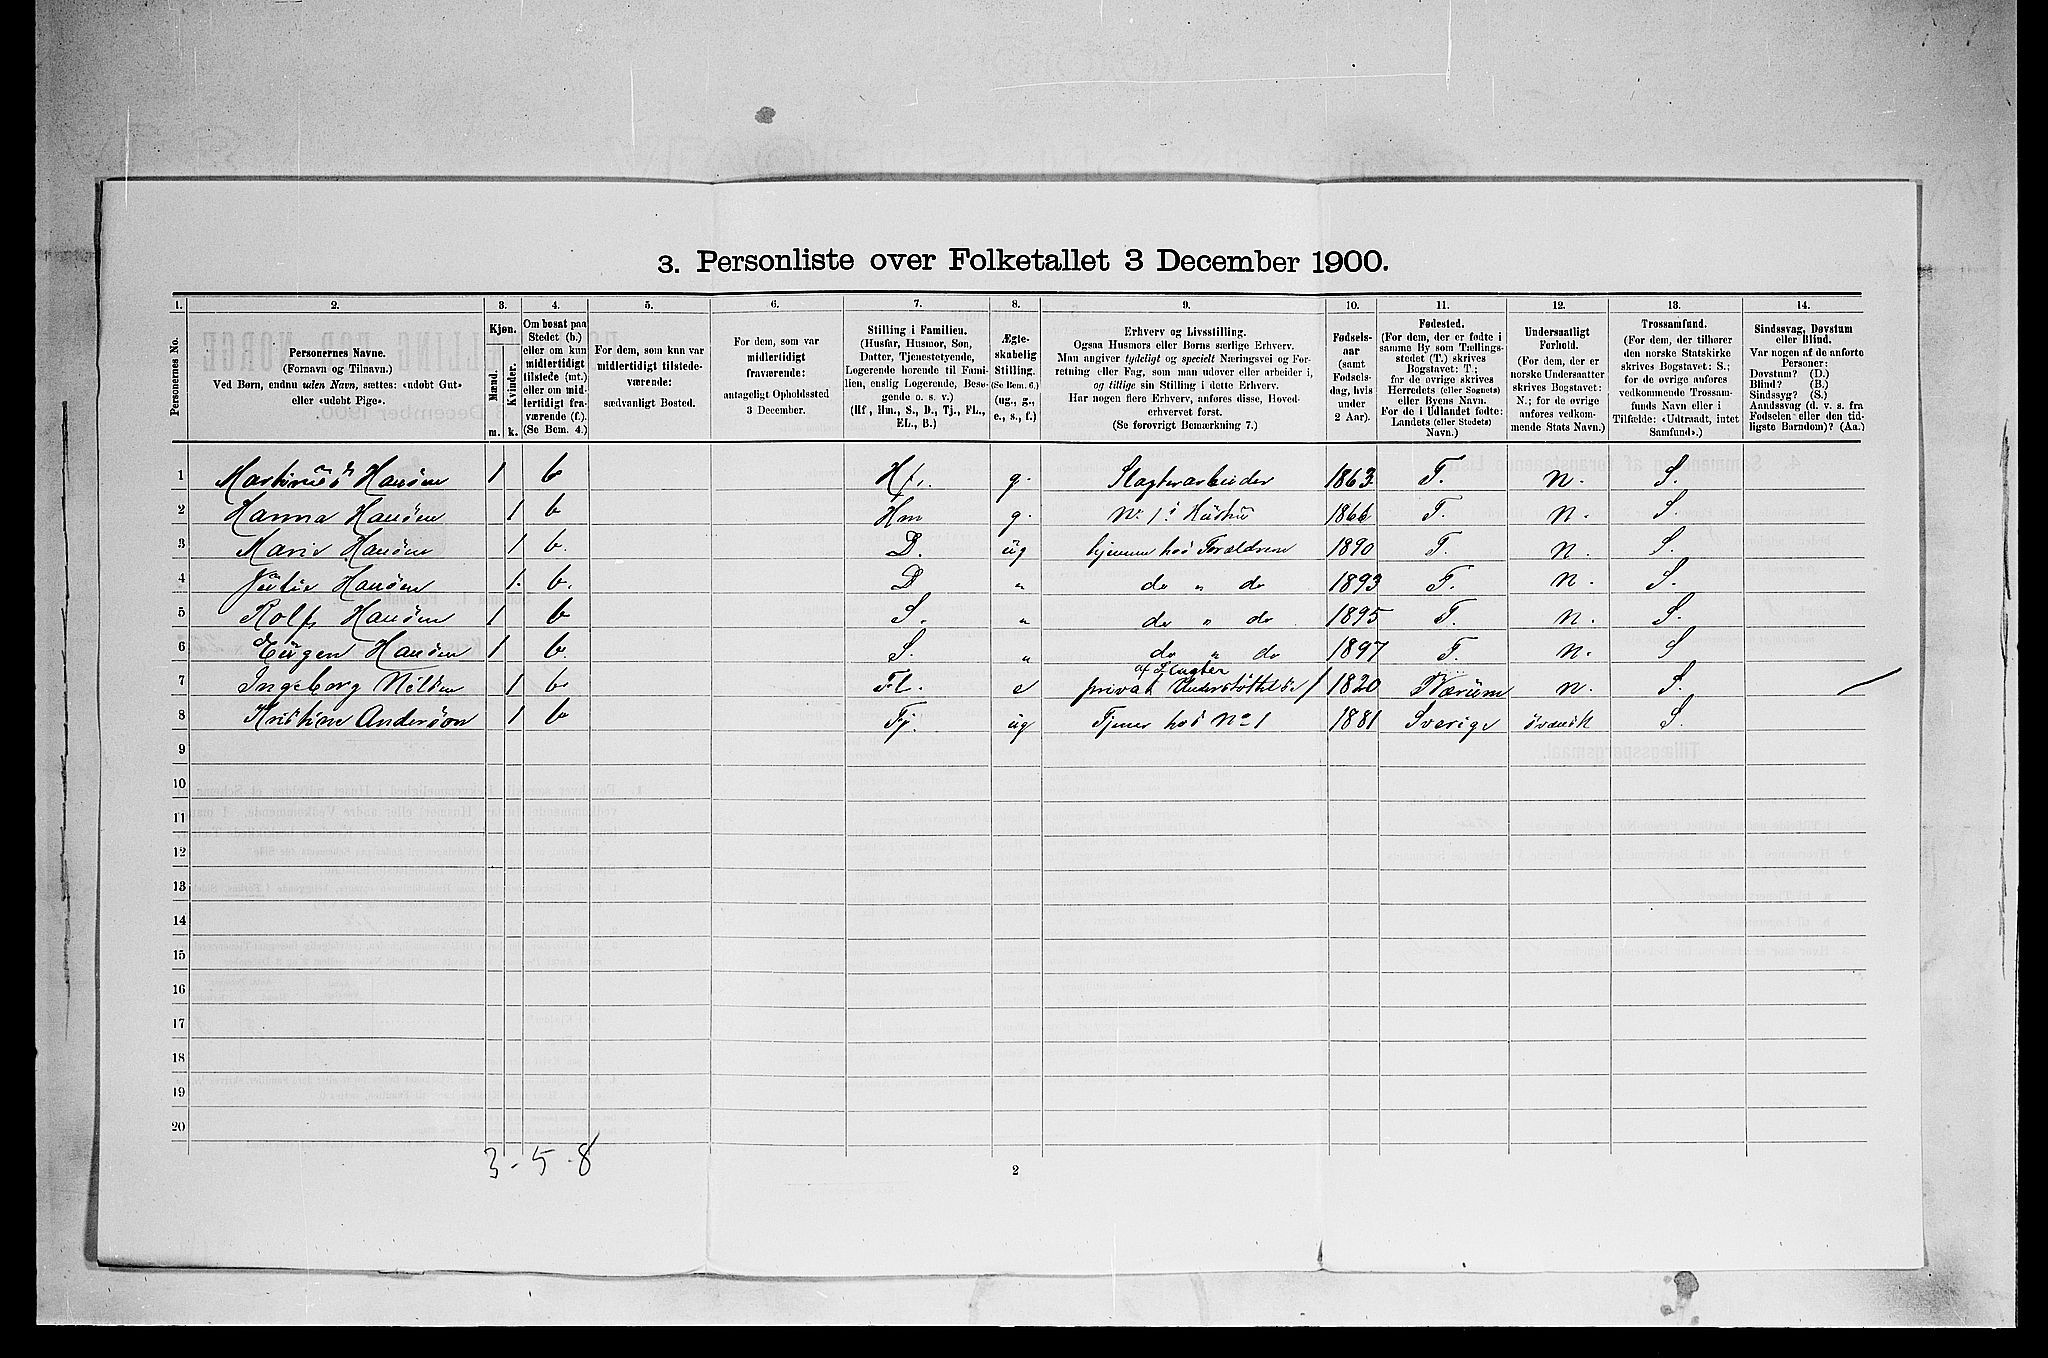 3. Personliste over Folketallet 3 December 1900.
1. 2. 3. 4. 5. 6. 7. 8. 9. 10. 11. 12. 13. 14.
Personernes No.
Personernes Navne.
(Fornavn og Tilnavn.)
Ved Børn, endnu uden Navn, sættes: «udøbt Gut»
eller «udøbt Pige».
Kjøn.
Mænd.
Kvinder.
m. k.
Om bosat paa
Stedet (b.)
eller om kun
midlertidigt
tilstede (mt.)
eller om mid-
lertidigt fra-
værende (f.)
(Se Bem. 4.)
For dem, som kun var
midlertidigt tilstede-
værende:
sædvanligt Bosted.
For dem, som var
midlertidigt
fraværende:
antageligt Opholdssted
3 December.
Stilling i Familien.
(Husfar, Husmor, Søn,
Datter, Tjenestetyende,
Logerende hørende til Fami-
lien, enslig Logerende, Besø-
gende o. s. v.)
(Hf, Hm., S., D., Tj., FL.,
EL., B.)
Ægte-
skabelig
Stilling.
(Se Bem. 6.)
(ug., g.,
e., s., f.)
Erhverv og Livsstilling.
Ogsaa Husmors eller Børns særlige Erhverv.
Man angiver tydeligt og specielt Næringsvei og For-
retning eller Fag, som man udøver eller arbeider i,
og tillige sin Stilling i dette Erhverv.
Har nogen flere Erhverv, anføres disse, Hoved-
erhvervet først.
(Se forøvrigt Bemærkning 7.)
Fødsels-
aar
(samt
Fødsels-
dag, hvis
under
2 Aar).
Fødested.
(For dem, der er fødte i
samme By som Tællings-
stedet (T.) skrives
Bogstavet: T.;
for de øvrige skrives
Herredets (eller Sognets)
eller Byens Navn.
For de i Udlandet fødte:
Landets (eller Stedets)
Navn.)
Undersaatligt
Forhold.
(For dem, der er
norske Undersaatter
skrives Bogstavet:
N.; for de øvrige
anføres vedkom-
mende Stats Navn.)
Trossamfund.
(For dem, der tilhører
den norske Statskirke
skrives Bogstavet: S.;
for de øvrige anføres
vedkommende Trossam-
funds Navn eller i
Tilfælde: «Udtraadt, intet
Samfund».)
Sindssvag, Døvstum
eller Blind.
Var nogen af de anførte
Personer:
Døvstum? (D.)
Blind? (B.)
Sindssyg? (S.)
Aandssvag (d. v. s. fra
Fødselen eller den tid-
ligste Barndom)? (Aa.)
1 Martinus Hansen 1 b Hf. g. Slagterarbeider 1863 T. N. S.
2 Hanna Hansen 1 b Hm g. No 1s Hustru 1866 T. N. S.
3 Marie Hansen 1 b. D. ug hjemme hos Forældrene 1890 T. N. S.
4 Julie Hansen 1. b. D " do " do 1893 T. N. S.
5 Rolf Hansen 1 b S. " do " do 1895 T. N. S.
6 Eugen Hansen 1 b. S. " do " do 1897 T. N. S
7 Ingeborg Nilsen 1 b. FL. e privat Understøttelse 1820 Bærum N. S.
8 Kristine Anderson 1 b Tj. ug Tjener hos No 1 1881 Sverige svensk S.
9
10
11
12
13
14
15
16
17
18
19
20
3 - 5 - 8
2